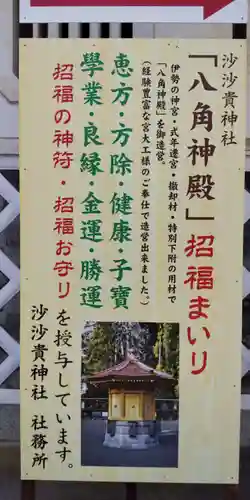 沙沙貴神社
「八角神殿」招福まいり
伊勢の神宮・式年遷宮・撤却村・特別下附の用村で
「八角神殿」を御造営。
(経験豊富な宮大工様のご奉仕で造営出来ました。)
恵方・方除・健康・子寶
學業・良縁・金運・勝運
招福の神符・招福お守り
を授与しています。
沙沙貴神社 社務所